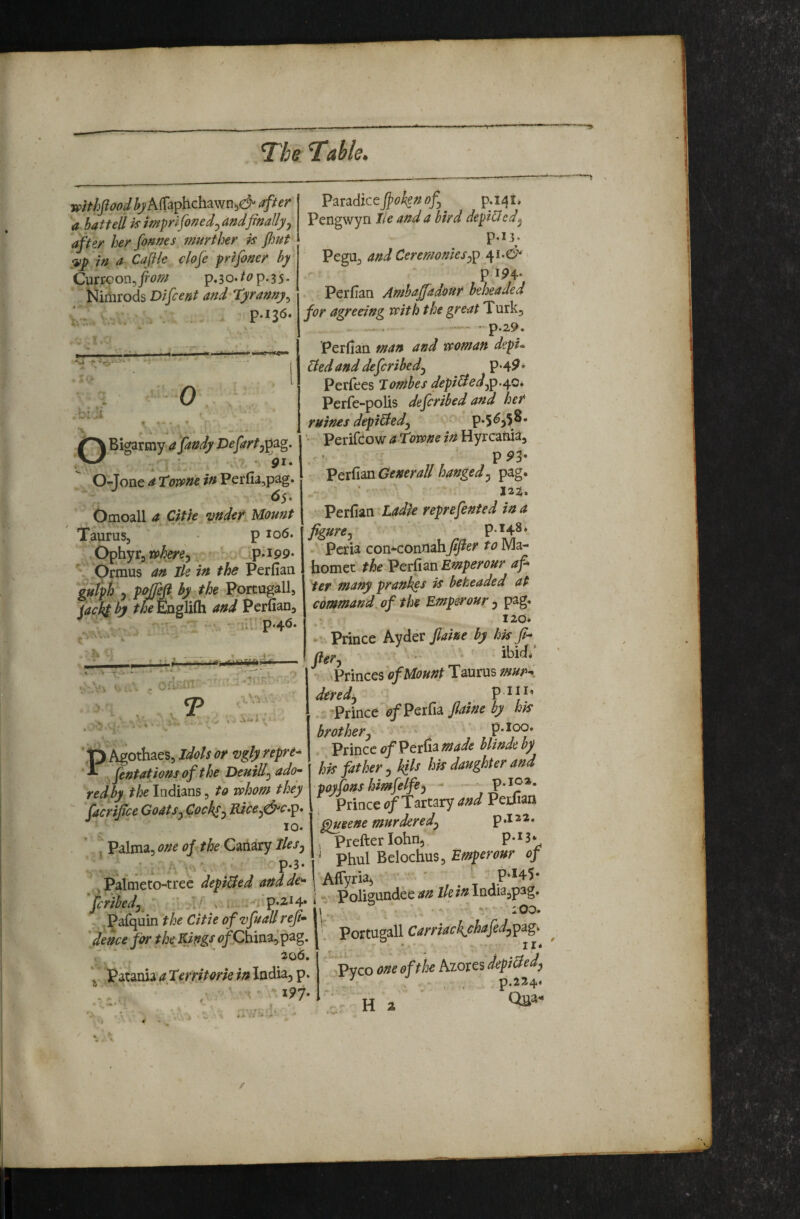 The Table.
withſtood by Aſſaphchawn, & after
a battell is impriſoned, and finally,
after her ſonnes murther is ſhut
vp in a Caſtle cloſe priſoner by
Curroon, from p.30. to p.35.
Nimrods Diſcent and Tyranny,
p.136.
O
OBigarmy a ſandy Deſart, pag.
91.
O-Jone a Towne in Perſia, pag.
65.
Omoall a Citie vnder Mount
Taurus, p 106.
Ophyr, where, p.199.
Ormus an Ile in the Perſian
gulph, poſſeſt by the Portugall,
ſackt by the Engliſh and Perſian,
p.46.
P
PAgothaes, Idols or vgly repre-
ſentations of the Deuill, ado-
red by the Indians, to whom they
ſacrifice Goats, Cocks, Rice, &c. p.
10.
Palma, one of the Canary Iles,
p.3.
Palmeto-tree depicted and de-
ſcribed, p.214.
Paſquin the Citie of vſuall reſi-
dence for the Kings of China, pag.
206.
Patania a Territorie in India, p.
197.
Paradice ſpoken of, p.141.
Pengwyn Ile and a bird depicted,
p.13.
Pegu, and Ceremonies, p 41. &
p 194.
Perſian Ambaſſadour beheaded
for agreeing with the great Turk,
p.29.
Perſian man and woman depi-
cted and deſcribed, p.49.
Perſees Tombes depicted, p.40.
Perſe-polis deſcribed and her
ruines depicted, p.56,58.
Periſcow a Towne in Hyrcania,
p 93.
Perſian Generall hanged, pag.
122.
Perſian Ladie repreſented in a
figure, p.148.
Peria con-connah ſiſter to Ma-
homet the Perſian Emperour af-
ter many prankes is beheaded at
command of the Emperour, pag.
120.
Prince Ayder ſlaine by his ſi-
ſter, ibid.
Princes of Mount Taurus mur-
dered, p 111.
Prince of Perſia ſlaine by his
brother, p.100.
Prince of Perſia made blinde by
his father, kils his daughter and
poyſons himſelfe, p.102.
Prince of Tartary and Perſian
Queene murdered, p.122.
Preſter Iohn, p.13.
Phul Belochus, Emperour of
Aſſyria, p.145.
Poligundee an Ile in India, pag.
200.
Portugall Carriack chaſed, pag.
11.
Pyco one of the Azores depicted,
p.224.
H 2
Qua-